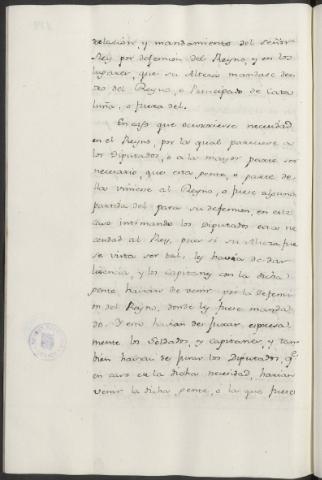 relasion, y mandamiento del Señor
Rey, por defension del Reyno, y en los
lugares, que su Alteza mandase den
tro del Reyno, o Principado de Cata
luña, o fuera del.
En caso que ocurriesse necesidad
en el Reyno, por la qual pareciese a
los Diputados, o a la mayor parte ser
necesario, que esta gente, o parte de
lla viniese al Reyno, o fuese alguna
partida del para su defension, en este
caso intimando los Diputados esta ne
cesidad al Rey, pues si su Alteza fue
se vista ser tal, les havia de dar
licencia, y los Capitanes con la dicha
gente havian de venir por la defensi
on del Reyno, donde les fuese manda
do. Y esto havian de jurar, espresa
mente los Soldados, y Capitanes, y tam
bien havian de jurar los Diputados, q.e
en caso de la dicha necesidad, harian
venir la dicha gente, o la que fuese